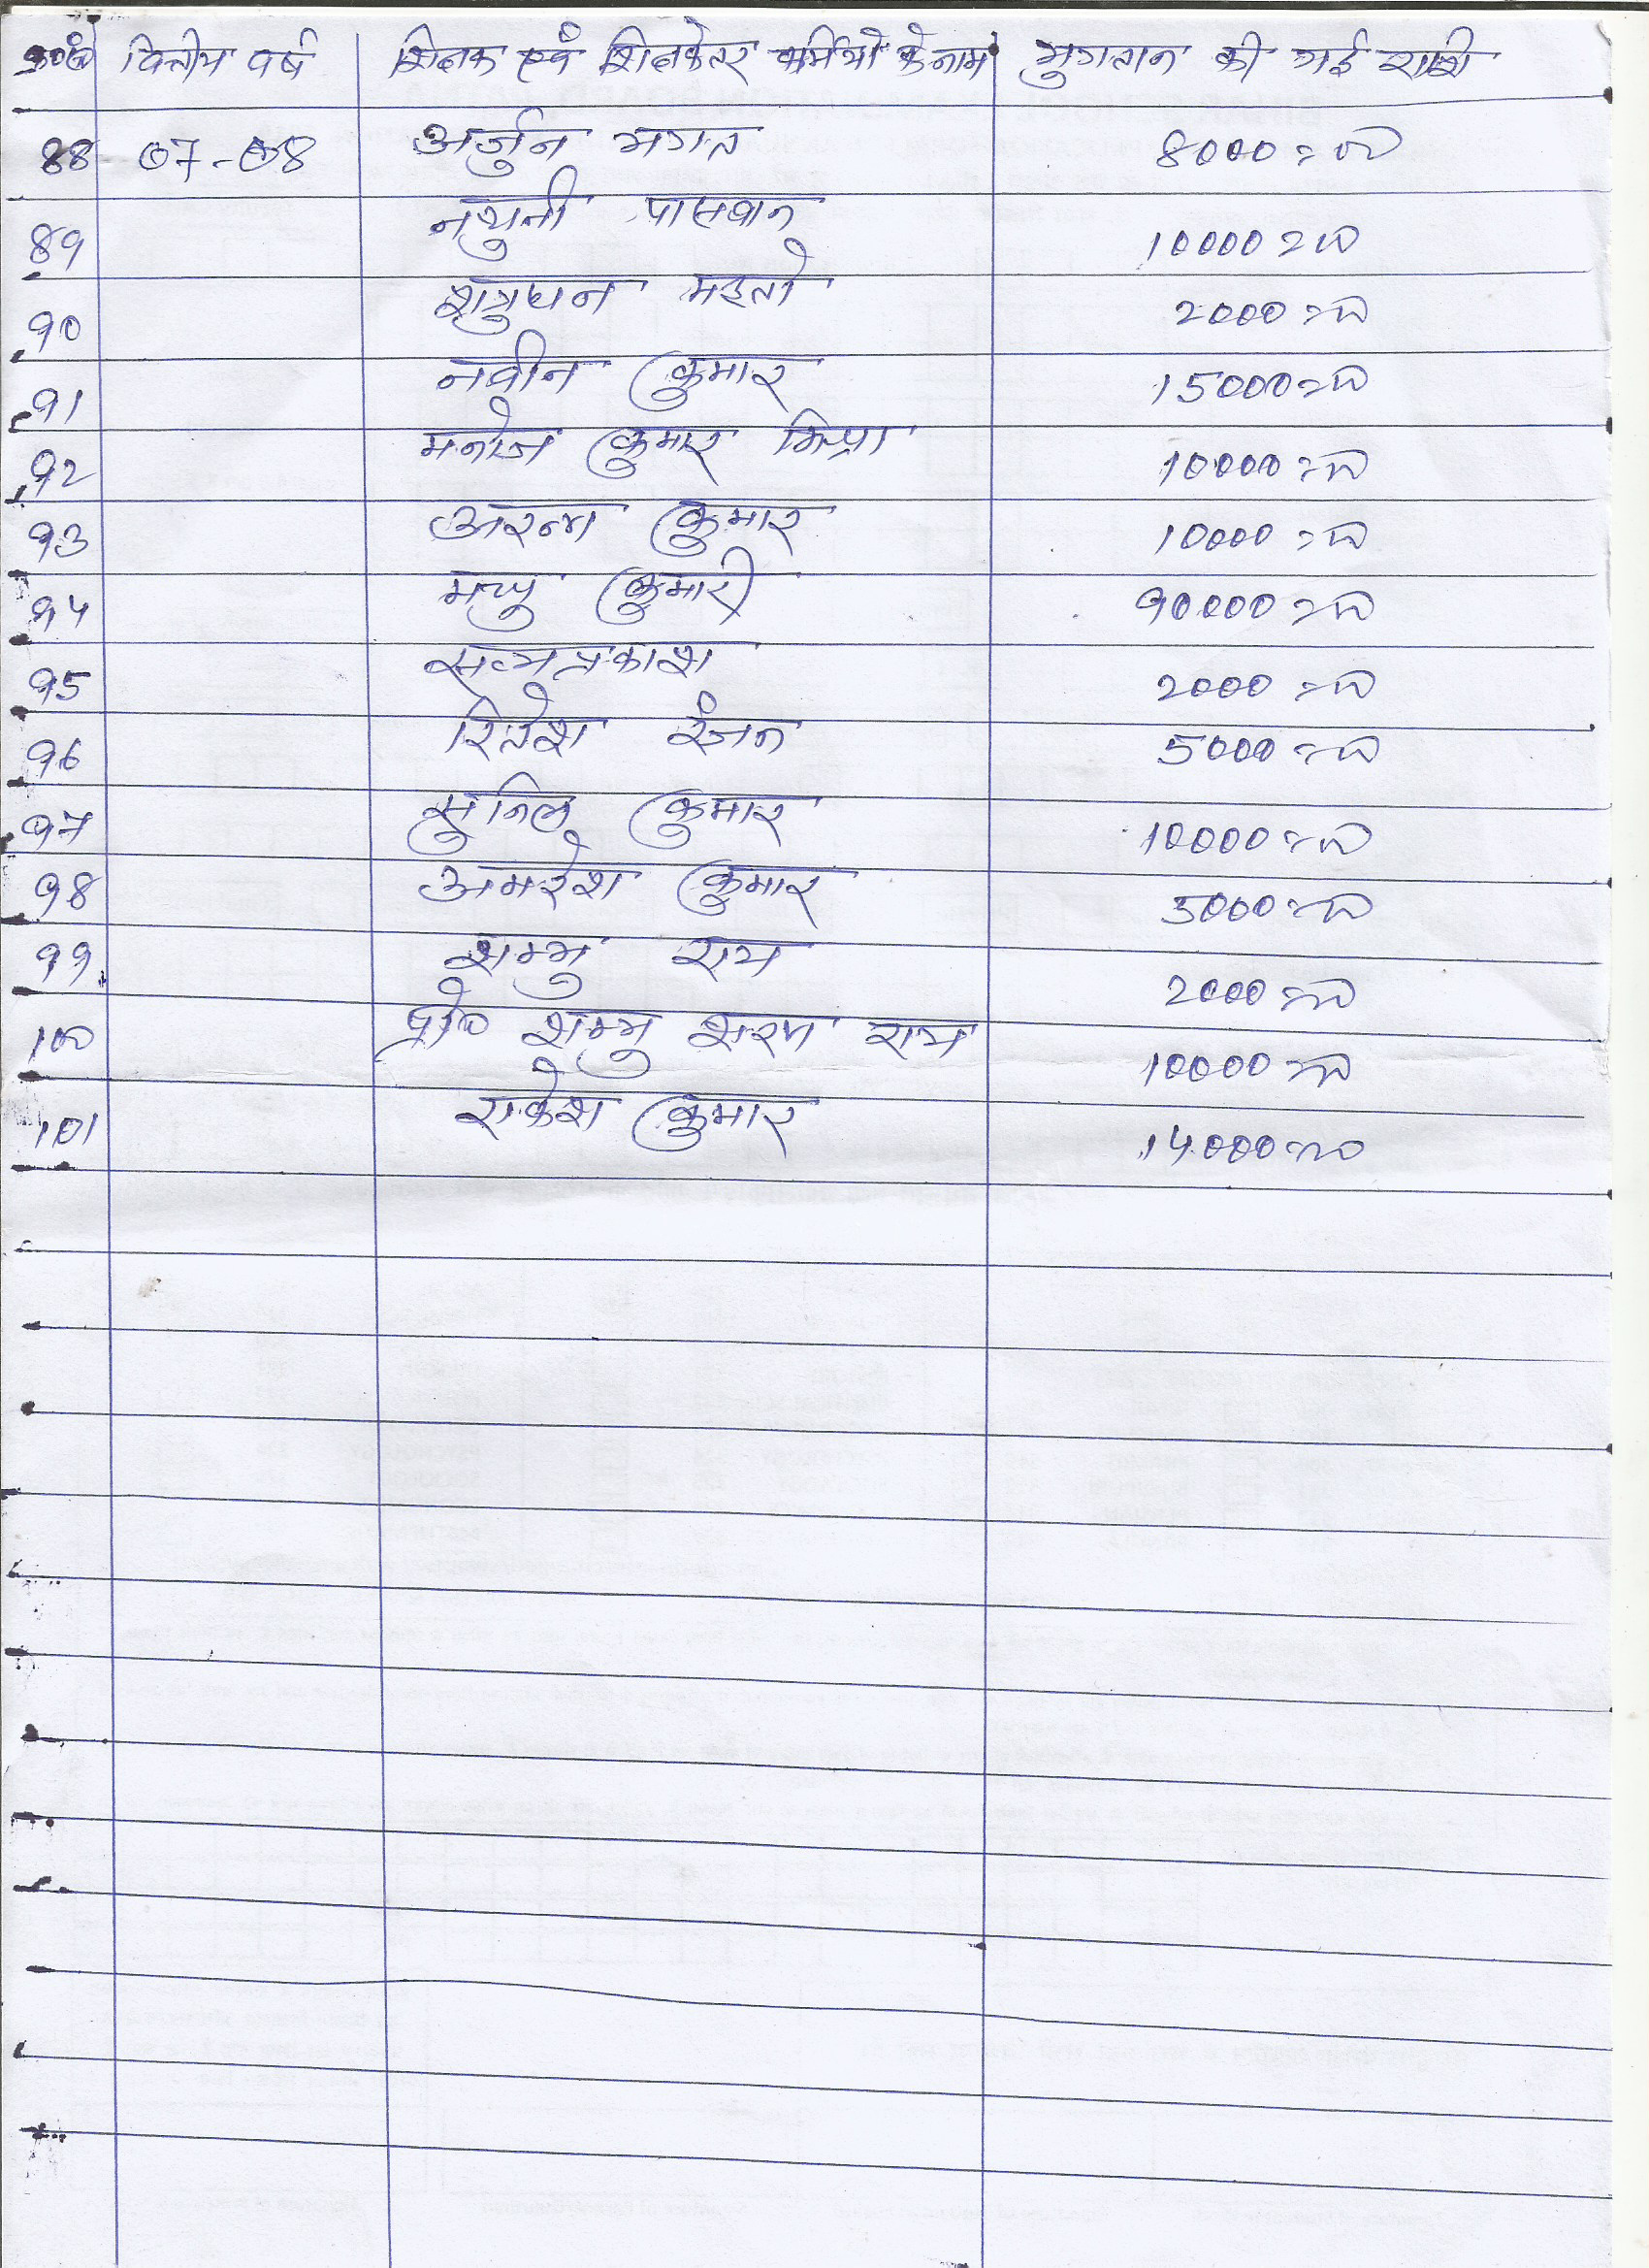 क्र०सं० वित्तीय वर्ष शिक्षक एवं शिक्षकेतर कर्मियों के नाम भुगतान की गई राशि
88 07-08 अर्जुन भगत 8000=00
89 नथुनी पासवान 10000=00
90 शत्रुघन महतो 2000=00
91 नवीन कुमार 15000=00
92 मनोज कुमार मिश्रा 10000=00
93 कुमार 10000=00
94 कुमारी 90000=00
95 सत्यप्रकाश 2000=00
96 रितेश रंजन 5000=00
97 सुनिल कुमार 10000=00
98 अमरेश कुमार 5000=00
99 शम्भु राय 2000=00
100 प्रो० शम्भु शरण राय 10000=00
101 राकेश कुमार 14000=00